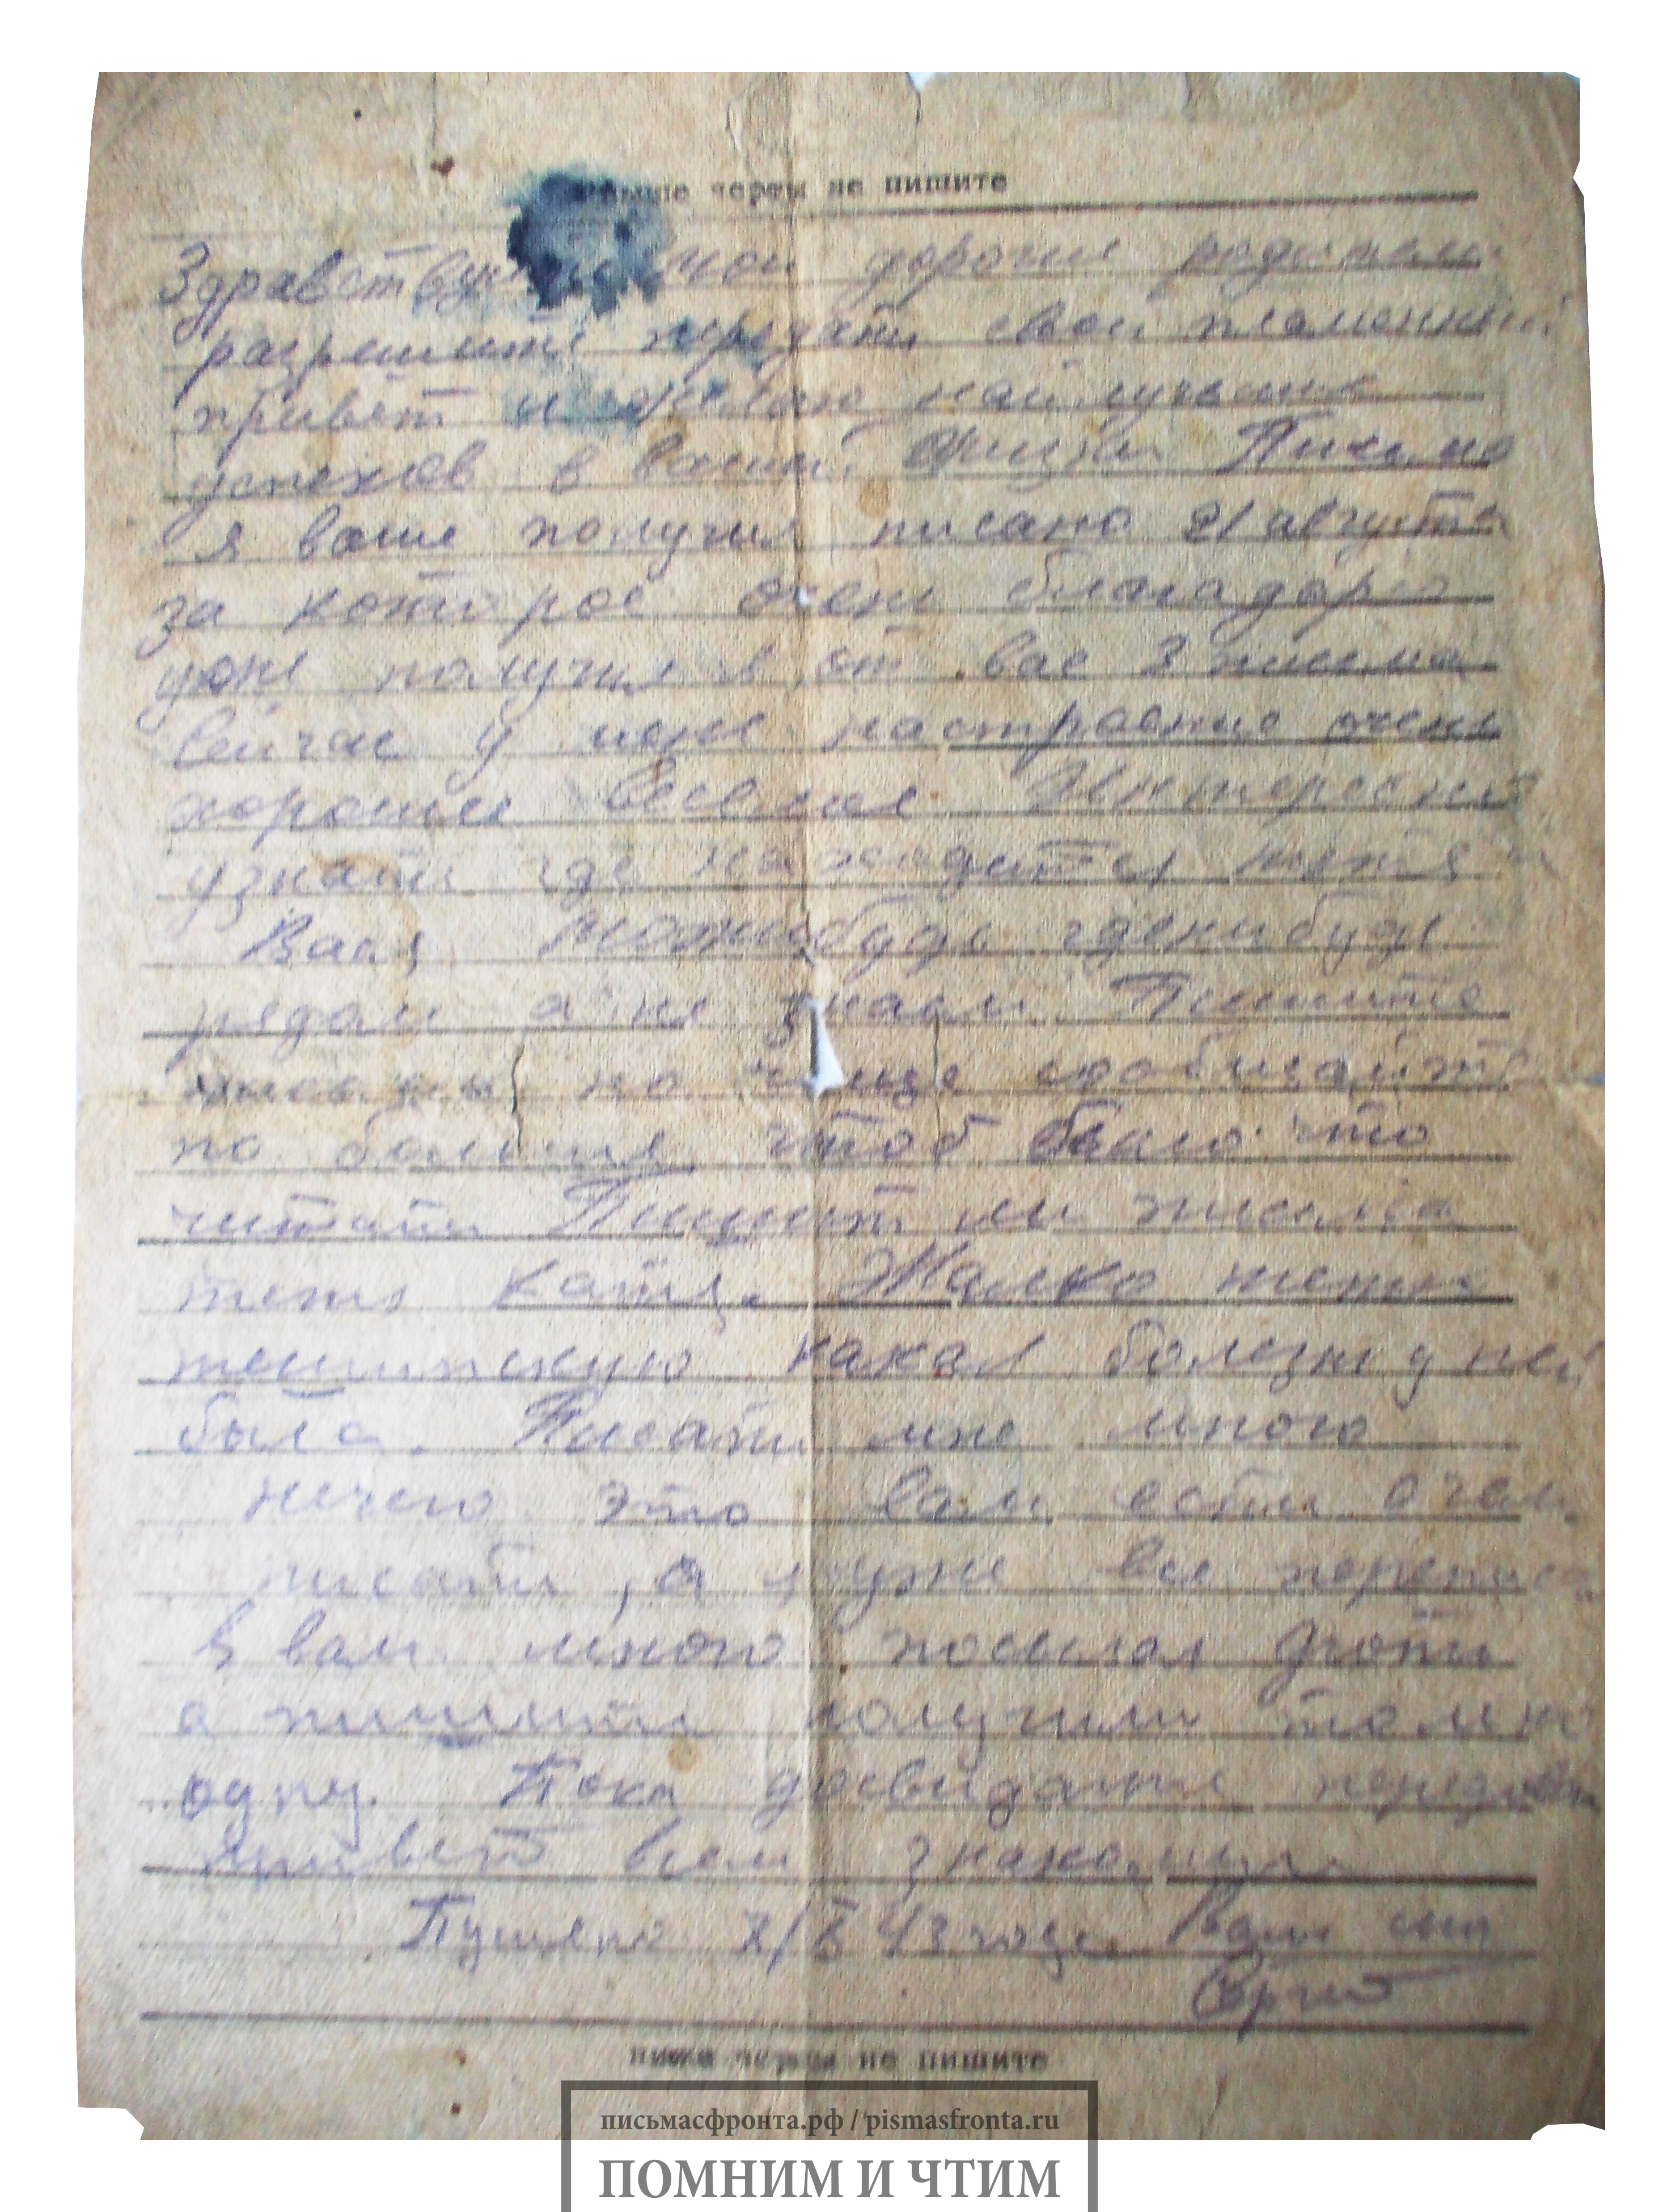 черты не пишите
Здравствуйте мои дорогие родители
разрешите передать свой пламенный
привет и желаю найлучьшие
успехов в вашей жизни Письмо
я ваше получил писано 21 августа
за которое очень благадарю
уже получил от вас 3 письма
Сейчас у меня настраение очень
хорошие Веселое Интересно
узнать где находится тетя
Вася можебудь гденибудь
рядом а не знаем Пишите
по чаще сообщайте
по больше чтоб было что
читать Пишит ли письма
тетя Катя. Жалко тетю
какая болезнь у ней
была. Писать мне много
нечего это вам есть очем
писать, а я уже все
Я вам много посылал фото
а пишити получили только
одну. Пока досвидание
привет всем знакомым
Пущено 43 года Ваш сын
Сергей
ниже черты не пишите
письмасфронта.рф / pismasfronta.ru
ПОМНИМ И ЧТИМ